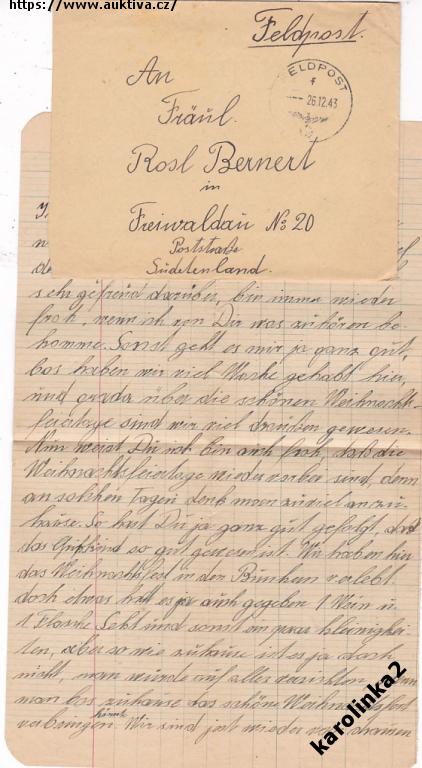 https://www.auktiva.cz/
Feldpost.
FELDPOST
f
26.12.43
An
Fräul.
Rosl Bernert
in
Freiwaldau No 20
Poststraße
Sudetenland.
sehr gefreud darüber, bin immer wieder
froh, wenn ich von Dir was zu hören be-
komme. Sonst geht es mir ja ganz gut,
bos haben wir viel gehabt hier,
und grade über die schönen Weihnacht-
feiertage sind wir viel draußen gewesen.
Nun weist Du ich bin auch froh, daß die
Weihnachtsfeiertage wieder vorbei sind, denn
an solchen Tagen denk man zuviel an zu-
hause. So hast Du ja ganz gut gefeigt, daß
das so gut gewesen ist. Wir haben hier
das Weihnachtfest in den Bunkern verlebt
doch etwas hat es ja auch gegeben 1 Wein u.
1 Flasche Sekt und sonst ein paar kleinigkei-
ten, aber so wie zuhause ist es ja doch
nicht, man würde auf alles verzichten, wenn
man bos zuhause das schöne Weihnachtsfest
verbringen könnte. Wir sind jest wieder draussen
karolinka2